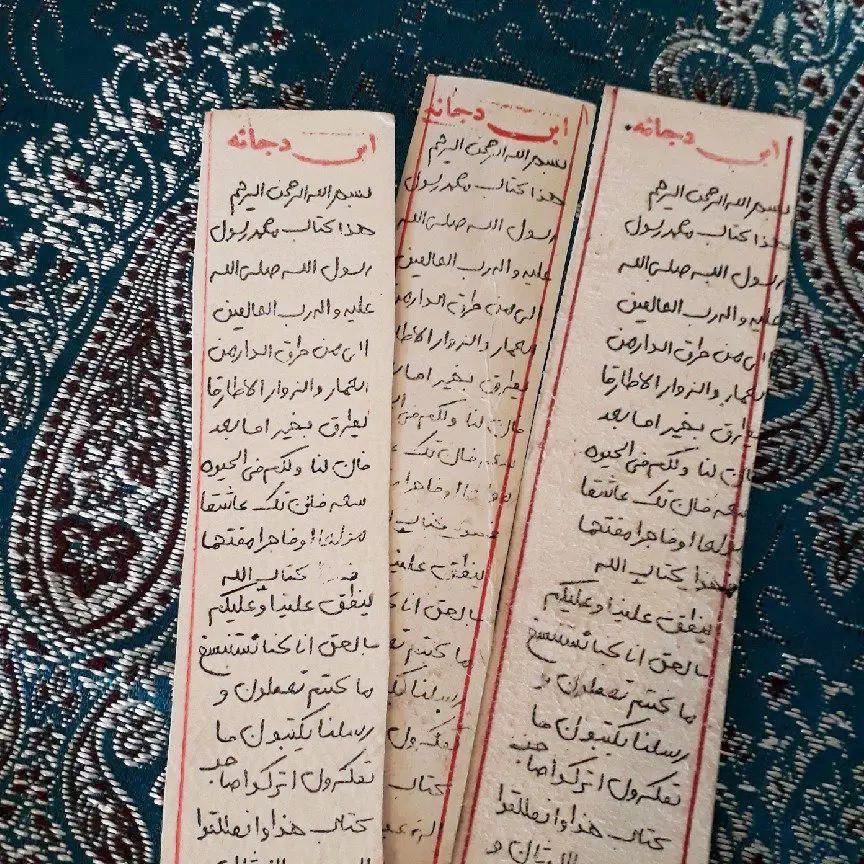 ابی دجانه
بسم الله الرحمن الرحیم
هذا کتاب محمد رسول
رسول الله صلی الله
علیه و اله رب العالمین
الی من طرق الدار من
العمار والزوار الاطارقا
یطرق بخیر اما بعد
فان لنا ولکم فی الحیوه
سعه فان تک عاشقا
مولعا اوفاجرا مقتحما
کتاب الله
ینطق علینا وعلیکم
بالحق انا کنا نستنسخ
ما کنتم تعملون و
رسلنا یکتبون ما
تمکرون اترکوا صاحب
کتاب هذا وانطلقوا
ابی دجانه
بسم الله الرحمن الرحیم
هذا کتاب محمد رسول
رسول الله صلی الله
علیه و اله رب العالمین
الی من طرق الدار من
العمار والزوار
یطرق بخیر اما
فان لنا ولکم فی
سعه فان تک
اوفاجرا
کتاب
ینطق علینا
بالحق انا
ما کنتم
رسلنا
تمکرون
کتاب
ابی دجانه
بسم الله الرحمن الرحیم
هذا کتاب محمد رسول
رسول الله صلی الله
علیه و اله رب العالمین
الی من طرق الدار من
العمار والزوار الاطارقا
یطرق بخیر اما بعد
فان لنا ولکم فی الحیوه
سعه فان تک عاشقا
مولعا اوفاجرا مقتحما
فهذا کتاب الله
ینطق علینا وعلیکم
بالحق انا کنا نستنسخ
ما کنتم تعملون و
رسلنا یکتبون ما
تمکرون اترکوا صاحب
کتاب هذا وانطلقوا